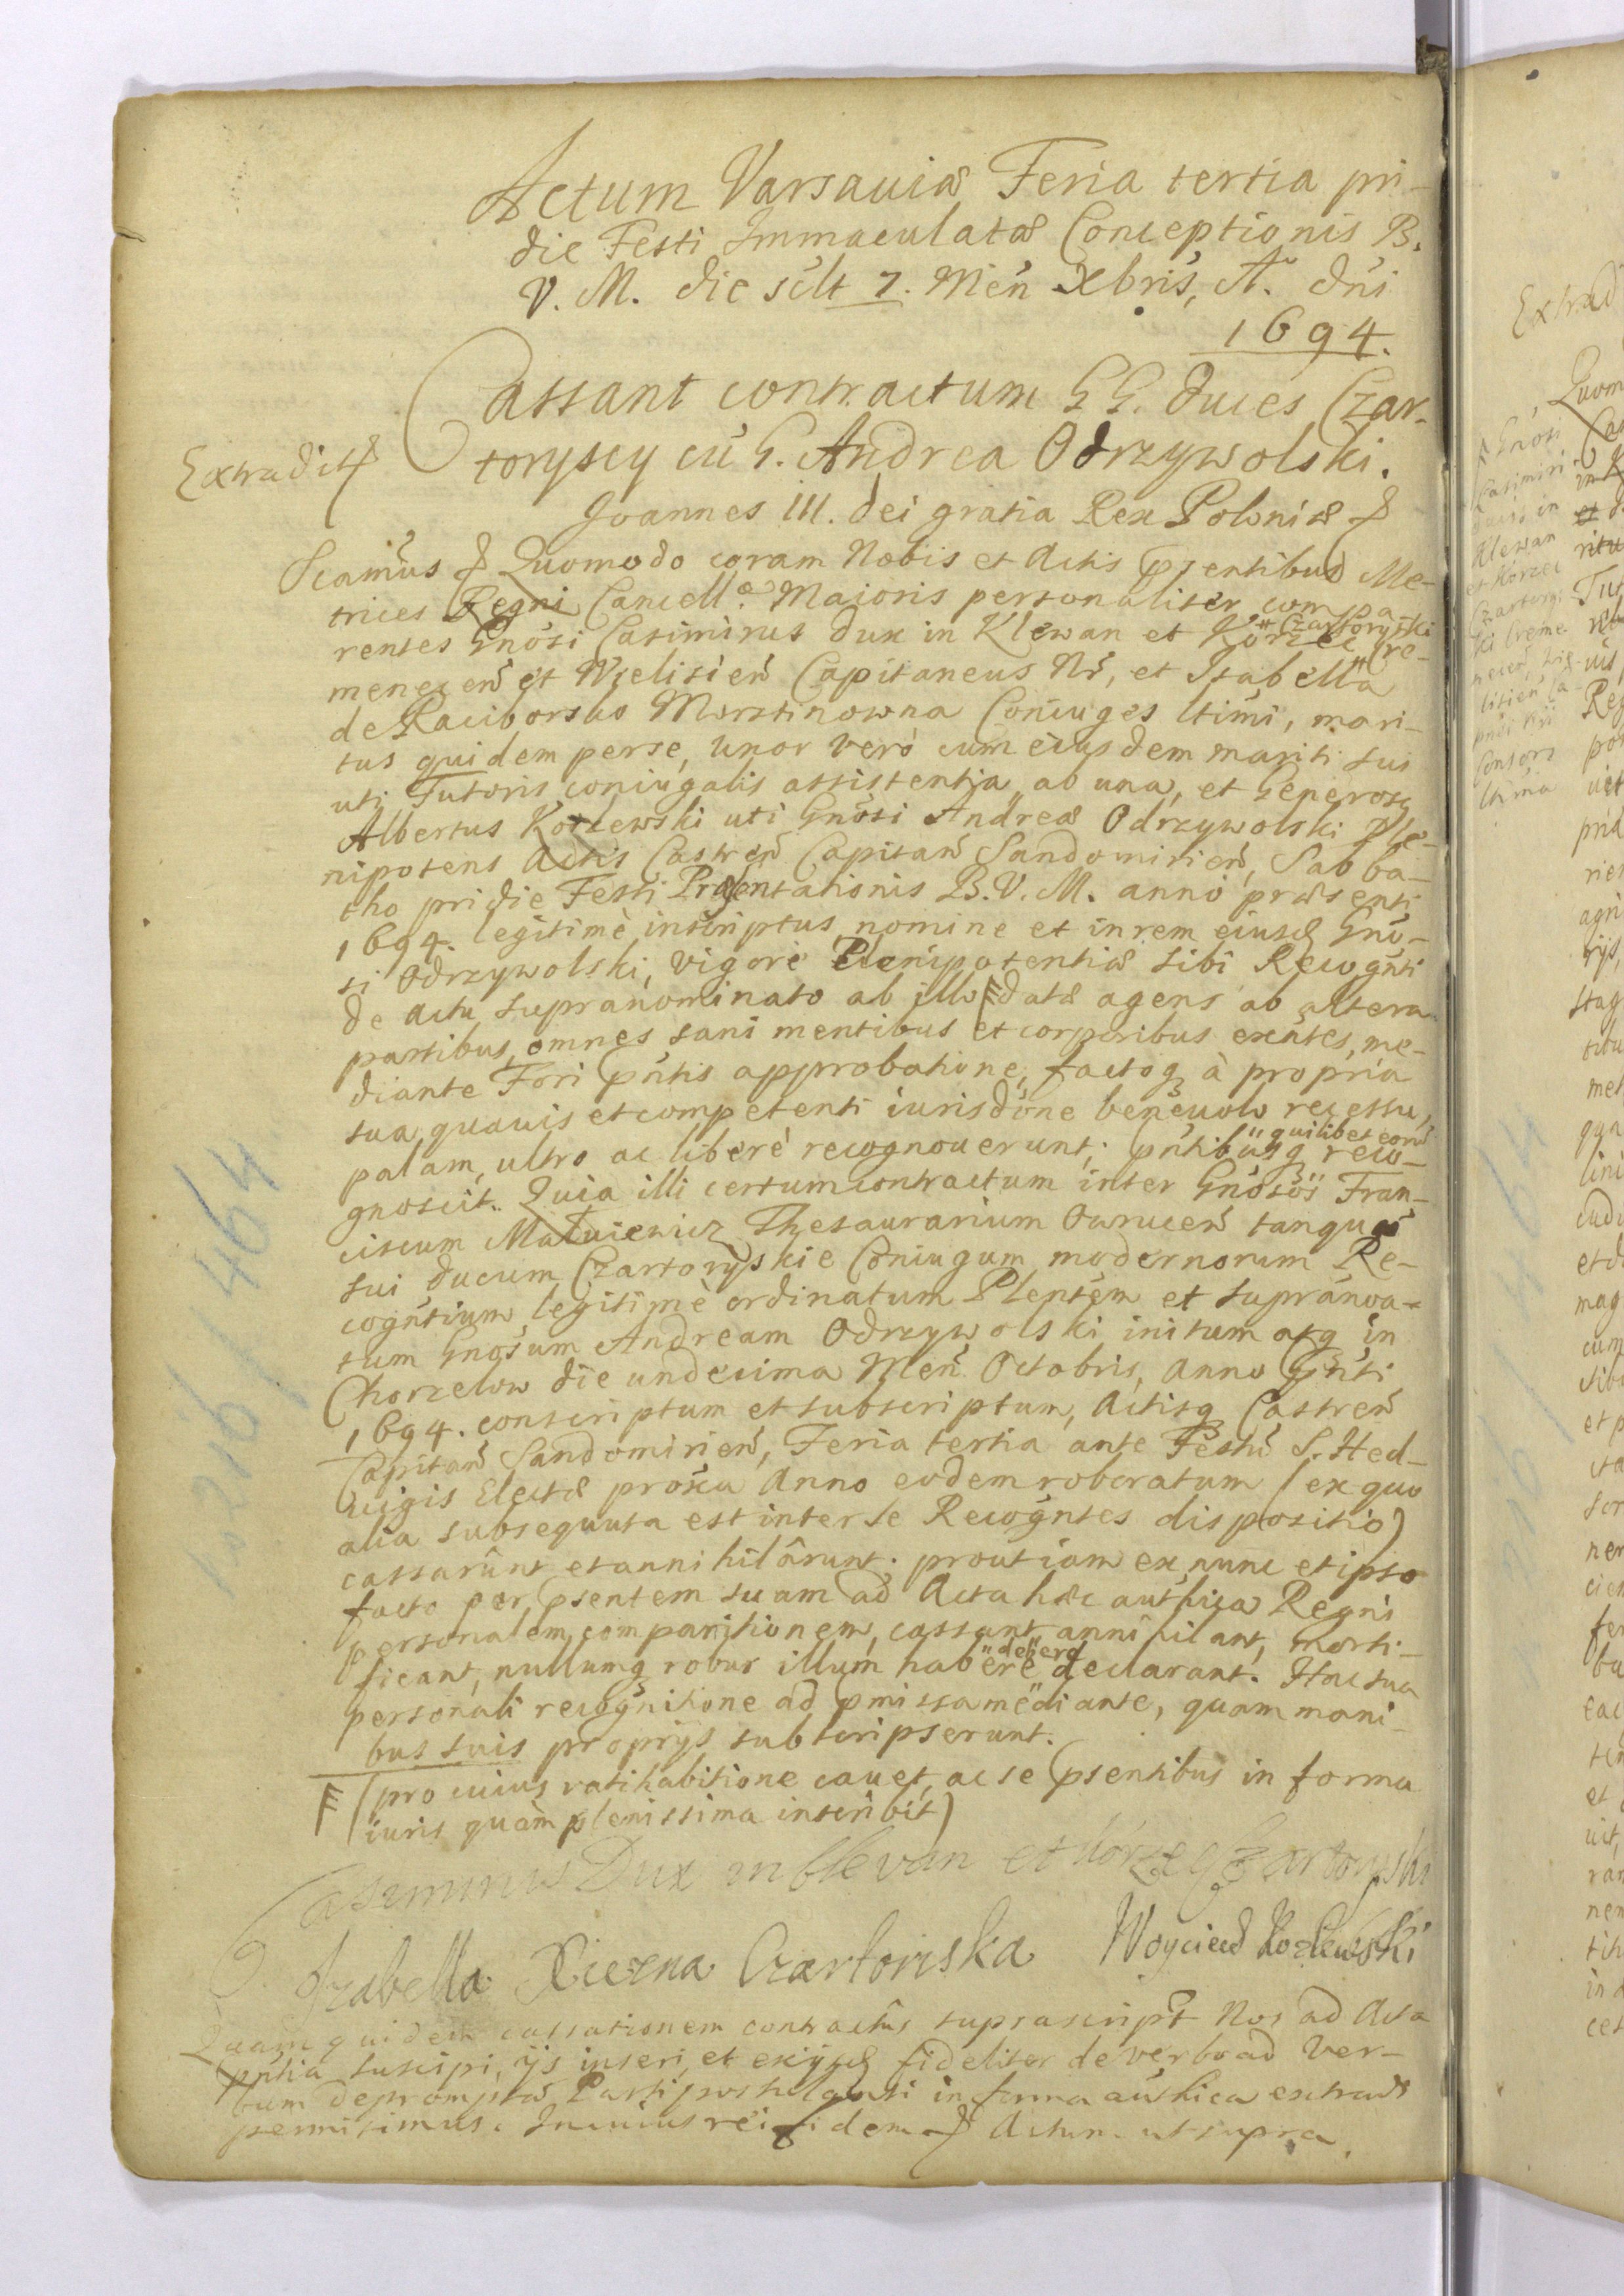 Actum Varsaviæ Feria tertia pri-
die Festi Immaculatæ Conceptionis B.
V. M. die sclt 7. Men Xbris, A. dni
1694.
Cassant contractum G G. duces Czar-
toryscy cu G. Andrea Odrzywolski.
Extradit
Joannes III. dei gratia Rex Poloniæ
Scamus Quomodo coram Nobis et Actis psentibus Me-
trices Regni Cancell. Maioris personaliter compa-
rentes Gnosi Casimirus dux in Klewan et Korzec # Czartoryski Cre-
menecen et Wielisien Capitaneus Nr, et Isabella
de Raciborsko Morstinowna Coniuges ltimi, mari-
tus quidem perse, uxor vero cum eiusdem mariti sui
uti Tutoris coniugalis assistentia ab una, et Generosg
Albertus Kozlewski uti Gnosi Andreæ Odrzywolski Ple-
nipotens Actis Castren Capitan Sandomirien, Sabba-
tho pridie Festi Præsentationis B. V. M. anni præsenti
1694. legitimè inscriptus, nomine et in rem eiusd Gno-
si Odrzywolski, vigore Plenipotentiæ sibi Recognti
de Actu supranominato ab illo datæ agens ab altera
partibus, omnes sani mentibus et corporibus exntes, me-
diante Fori pntis approbatione, factoq à propria
sua quavis et competenti iurisdone benevolo recessu,
palam, ultro ac liberè recognoverunt, pntibusq " quilibet eorum reco-
gnoscit. Quia illi certum contractum inter Gnosos Fran-
ciscum Matuiewicz Thesaurarium Owrucen tanqua
sui ducum Czartoryskie Coniugum modernorum Re-
cogntium legitimè ordinatum Plentem et supranoa-
tum Gnosum Andream Odrzywolski initum atq in
Chorzelow die undecima Men Octobris, Anno pnti
1694. conscriptum et subscriptum, Actisq Castren
Capitan Sandomirien, Feria tertia ante Festu S. Hed-
uigis Electæ proxa Anno eodem roboratum (ex quo
alia subsequuta est inter se Recogntes dispositio)
cassarunt et annihilarunt. prout iam ex nunc et ipso
facto per psentem suam ad Acta hæc authica Regni
personalem comparitionem, cassant annihilant, morti-
ficant, nullumq robur illum habere " debere " declarant. Hac sua
personali recognitione ad pmissa mediante, quam mani-
bus suis proprys subscripserunt.
(pro cuius ratihabitione cavet, ac se psentibus in forma
iuris quàm plenissima inscribit)
Casimirus Dux in Klevan et Korzec Czartoryski
Izabella Xiezna Czartoriska Woyciech Kozlewski
Quam quidem cassationem contractus suprascript Nos ad Acta
pntia suscipi, ijs inseri et exijsd fideliter de verbo ad ver-
bum depromptas Parti postulanti in forma authica extradi
permisimus. In cuius rei fidem Actum ut supra.
1.216/1464
Extrad
Gnosi
Casimiri
ducis in
Klewan
et Korzec
Czartorys
ki Creme
necen, Wie-
lisien Ca-
pnei Nri
Consors
ltima